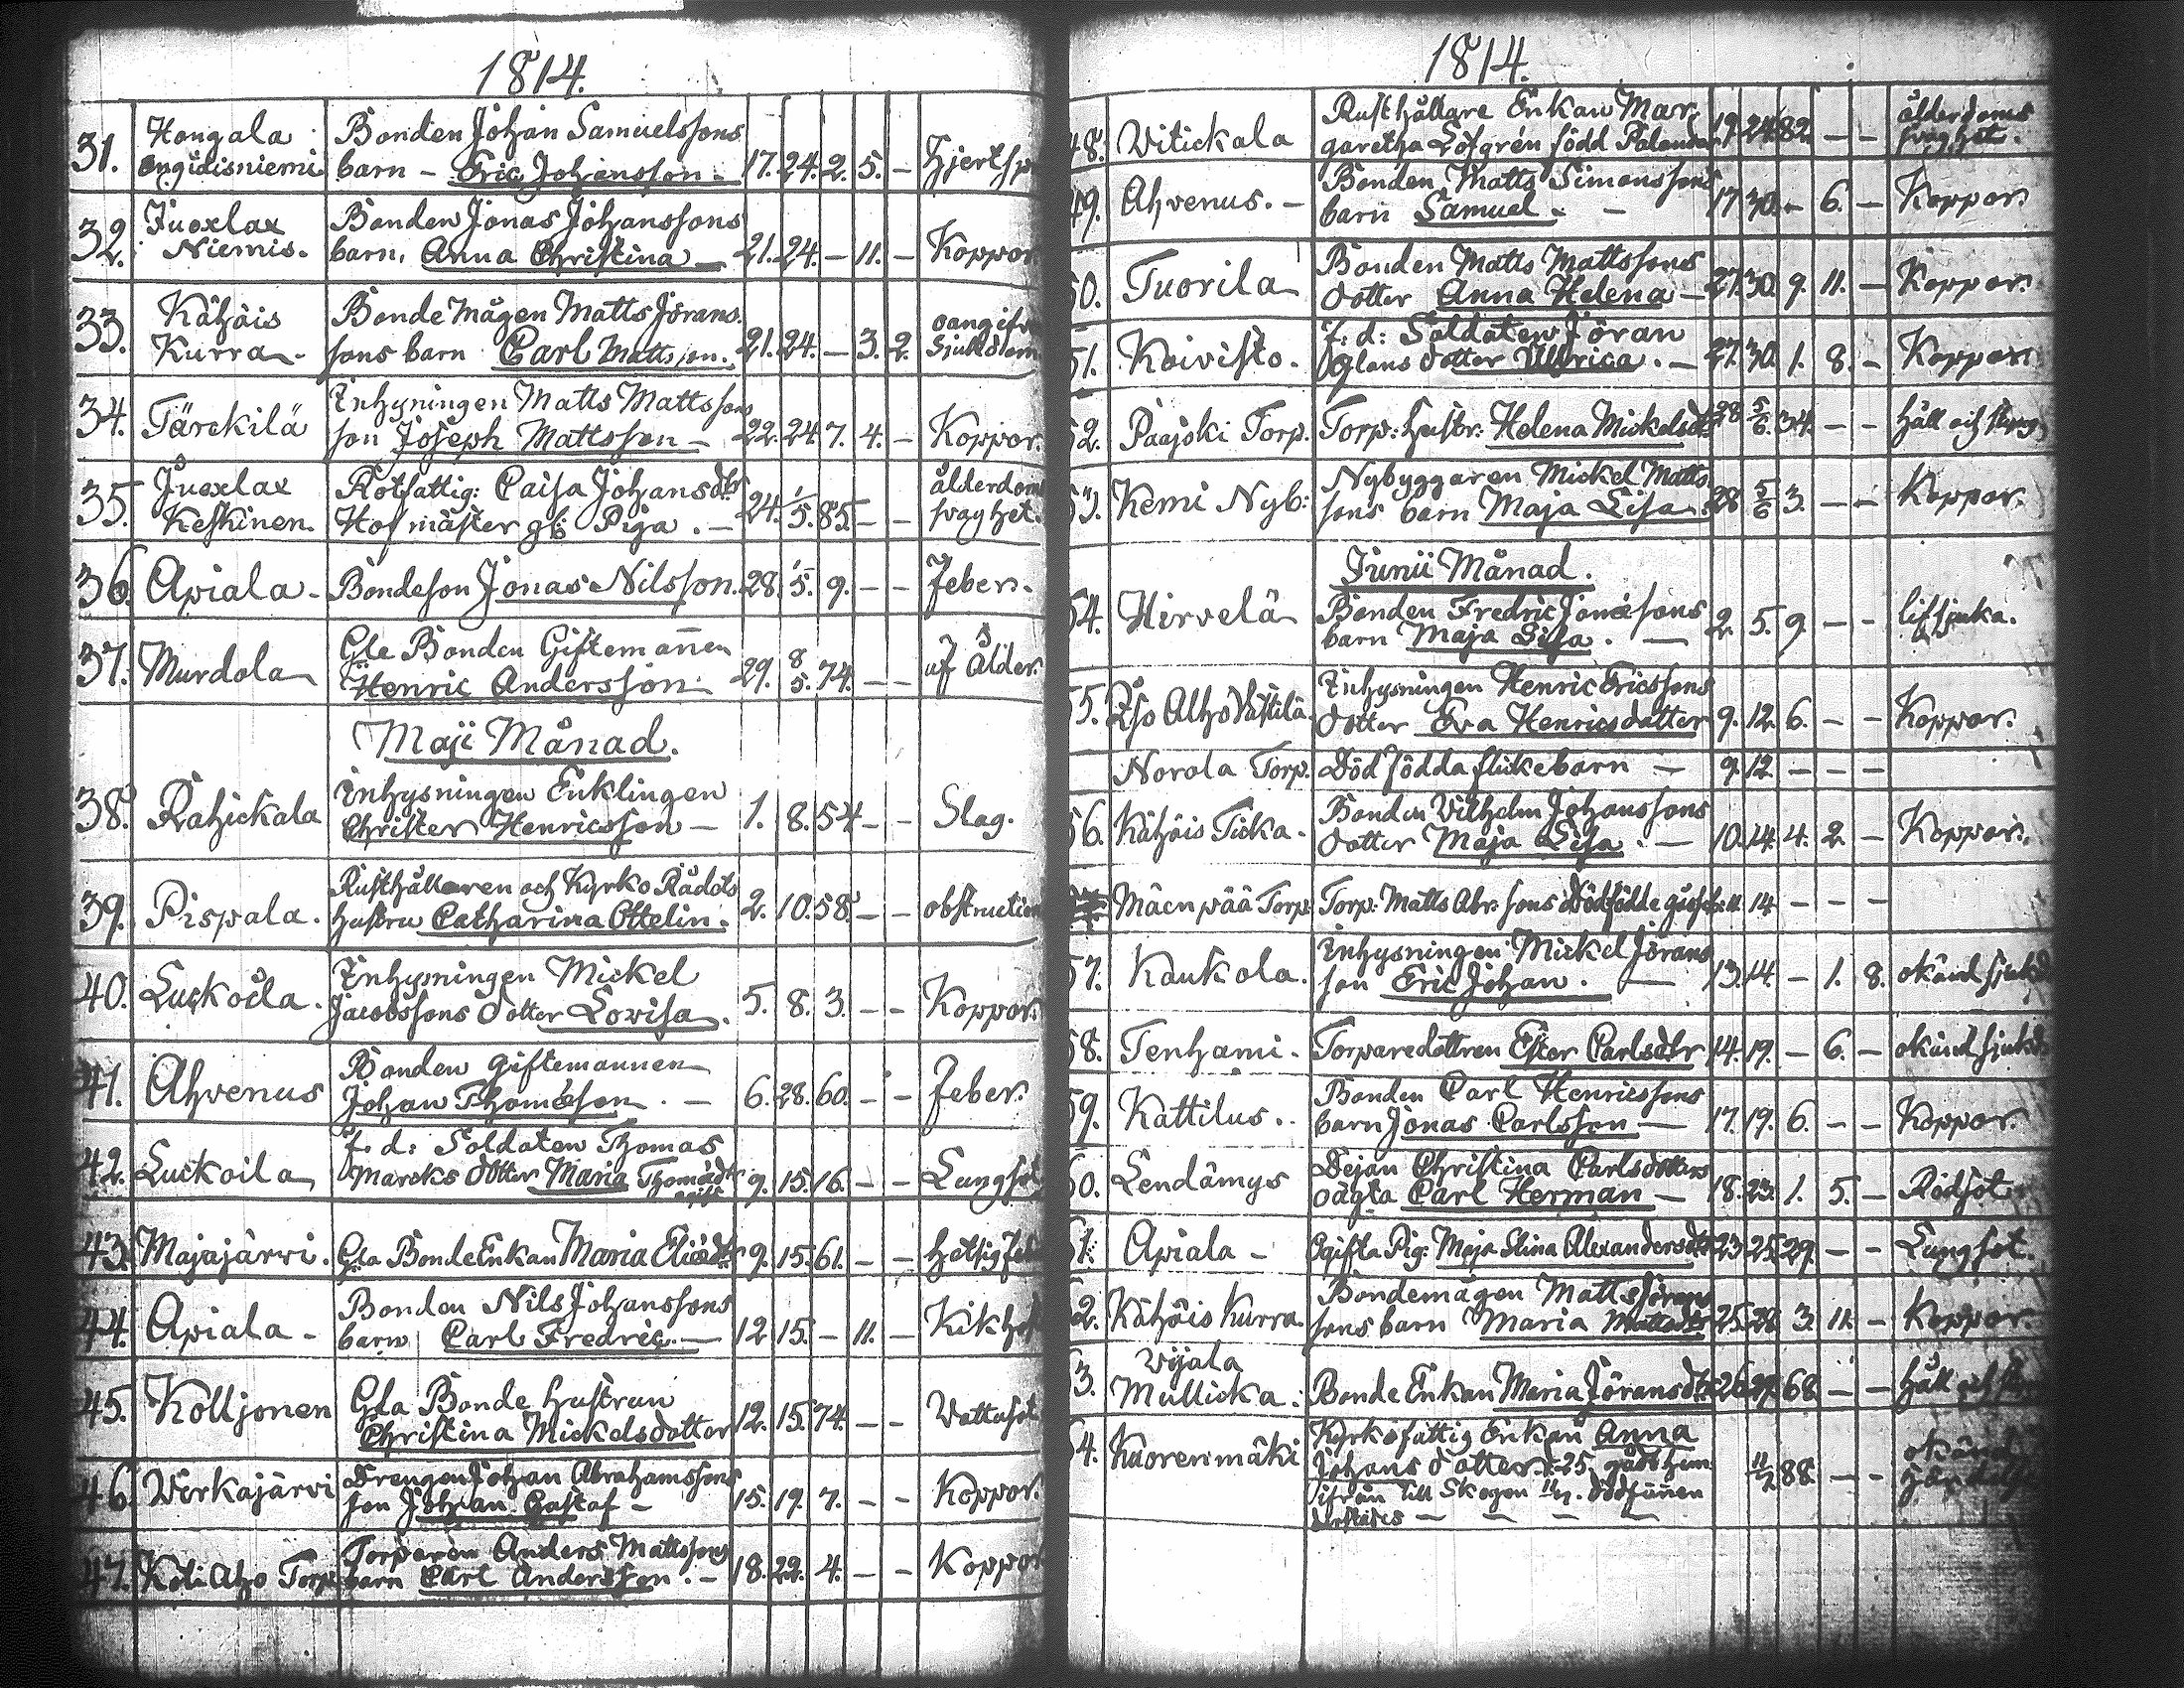 1814.
31. Hongala Bonden Johan Samuelssons
barn - Eric Johansson - 17. 24. 2. 5. -
32. Juoxlax Bonden Jonas Johanssons
Niemis. barn, Anna Christina - 21. 24. - 11. - Koppor
33. Kähöis Bonde Mågen Matts Jörans
Kurra. sons barn Carl Mattsson. 21. 24. - 3. 2. oangifven Sjukdom
34. Tärckilä Inhysningen Matts Mattssons
son Joseph Mattsson - 22. 24. 7. 4. - Koppor.
35. Juoxlax Rotfattig: Caisa Johansdtr ålderdoms
Keskinen. Hofmäster gl: Piga. - 24. 1/5. 85. - - svaghet.
36. Apiala - Bondeson Jonas Nilsson. 28. 1/5. 9. - - Feber.
37. Murdola Gle Bonden Giftemannen
Henric Andersson 29. 8/5. 74. - - af Ålder.
Maji Månad.
38. Rahickala Inhysningen Enklingen
Christer Henricsson - 1. 8. 54 - - Slag.
39. Pispala. Rusthållaren och Kyrko Rådets
hustru Catharina Ottelin. 2. 10. 58. - - obstruction
40. Luckoila. Inhysningen Mickel
Jacobssons dotter Lovisa. 5. 8. 3. - - Koppor.
41. Ahvenus Bonden giftemannen
Johan Thomasson. - 6. 28. 60. - - Feber.
42. Luckoila f. d: Soldaten Thomas
Marcks dotter Maria Thomædtr ogift 9. 15. 16. - - Lungsot
43. Majajärvi. Gla Bonde Enkan Maria Eliædtr 9. 15. 61. - - hetsig feber
44. Apiala - Bonden Nils Johanssons
barn Carl Fredric. - 12. 15. - 11. - Kikhosta
45. Kolljonen Gla Bonde hustrun
Christina Mickelsdotter 12. 15. 74. - - Vattusot
46. Virkajärvi Drengen Johan Abrahamssons
son Johan Gustaf - 15. 19. 7. - - Koppor.
47. Koti Aho Torp Torparen Anders Mattssons
barn Carl Andersson. - 18. 22. 4. - - Koppor
1814.
48. Vitickala Rusthållare Enkan Mar- ålderdoms
garetha Löfgrén född Palander 19. 24. 82. - - svaghet.
49. Ahvenus. - Bonden Matts Simonssons
barn Samuel. - 17. 30. - 6. - Koppor.
50. Tuorila Bonden Matts Mattssons
dotter Anna Helena - 27. 30. 9. 11. - Koppor.
51. Koivisto. f: d: Soldaten Jöran
Glans dotter Ullrica. - 27. 30. 1. 8. - Koppor
52. Paajski Torp. Torp: hustr: Helena Mickelsdr 28 5/6. 34. - - håll och styng
53. Kemi Nyb: Nybyggaren Mickel Matts
sons barn Maja Lisa. 28 5/6 3. - - Koppor.
Junii Månad.
54. Hirvelä Bonden Fredric Jonæsons
barn Maja Lisa. - 2. 5. 9. - - lifsjuka.
55. Iso Alho Inhysningen Henric Ericssons
dotter Eva Henricsdotter 9. 12. 6. - - Koppor.
Norola Torp. Död födda flickebarn - 9. 12 - - -
56. Kähöis Ticka. Bonden Vilhelm Johanssons
dotter Maja Lisa. - 10. 14. 4. 2. - Koppor.
Mäenpää Torp Torp: Matts Abr: sons dödfödde 11. 14 - - -
57. Kaukola. Inhysningen Mickel Jörans
son Eric Johan. - 13. 14. - 1. 8. okänd sjukd
58. Tenhami. Torparedottren Ester Carlsdtr 14. 19. - 6. - okänd sjukd.
59. Kattilus.. Bonden Carl Henricssons
barn Jonas Carlsson - 17. 19. 6. - - Koppor.
60. Lendämys Dejan Christina Carlsdotters
oägta Carl Herman - 18. 23. 1. 5. - Rödsot.
61. Apiala - Ogifta Pig: Maja Stina Alexandersdtr 23. 25. 29. - - Lungsot.
62. Kähöis Kurra. Bondemågen Matts Jörans
sons barn Maria Mattsdtr 25. 3. 11. - Koppor.
63. Vijala
Mullicka. Bonde Enkan Maria Jöransdtr 26. 68. - - håll och
64. Kuorenmäki Kyrkofattig Enkan Anna
Johans dotter, 25 gådt hem
ifrån till Skogen 11/7. dödfunnen 88. - - okänd
derstädes - - - -